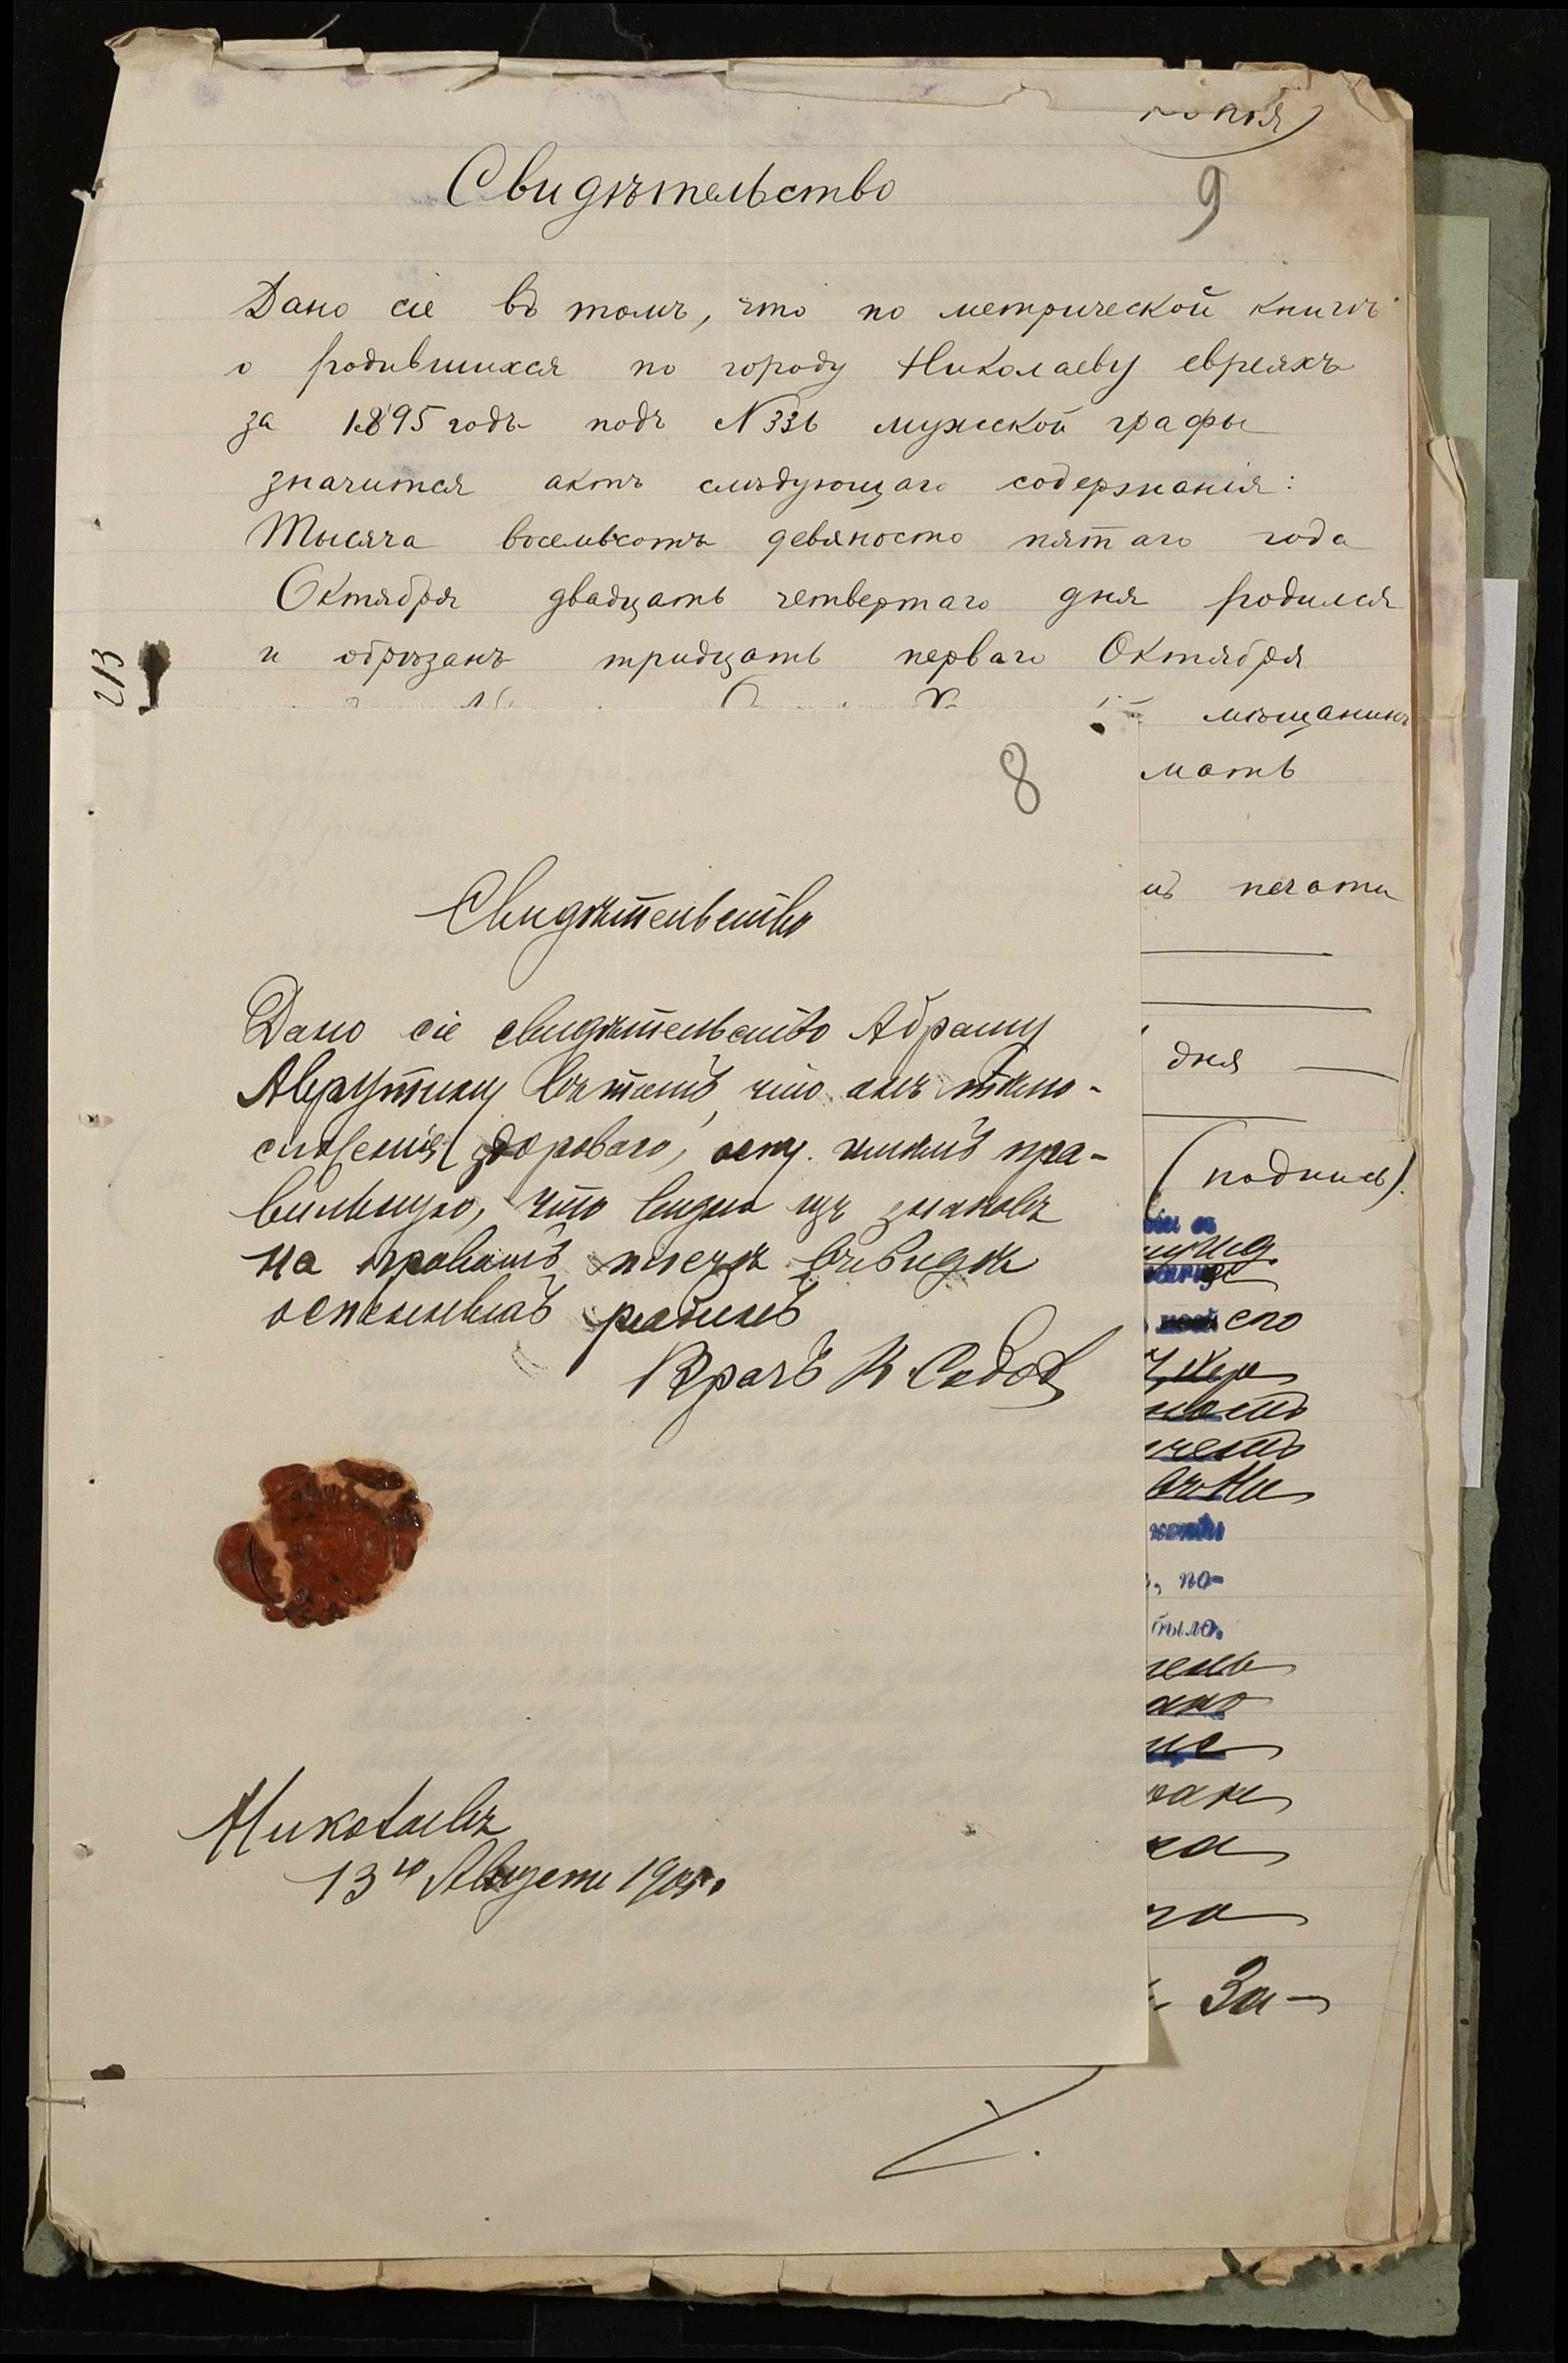 копія
Свидѣтельство
9
Дано сіе въ томъ, что по метрической книгѣ
о родившихся по городу Николаеву евреяхъ
за 1895 годъ подъ N 336 мужской графы
значится актъ слѣдующаго содержанія:
Тысяча восемьсотъ девяносто пятаго года
Октября двадцать четвертаго дня родился
и обрѣзанъ тридцать перваго Октября
213
мѣщанинъ
8
мать
печати
Свидѣтельство
Дано сіе свидѣтельство Абраму
Аврутину въ томъ, что онъ тѣло-
сложенія здороваго, осп. имѣлъ пра-
вильную, что видно изъ знаковъ
на правомъ плечѣ въ видѣ
оспенныхъ
Врачъ
дня
(подпись).
его
по-
было.
За-
Николаевъ
13го Августа